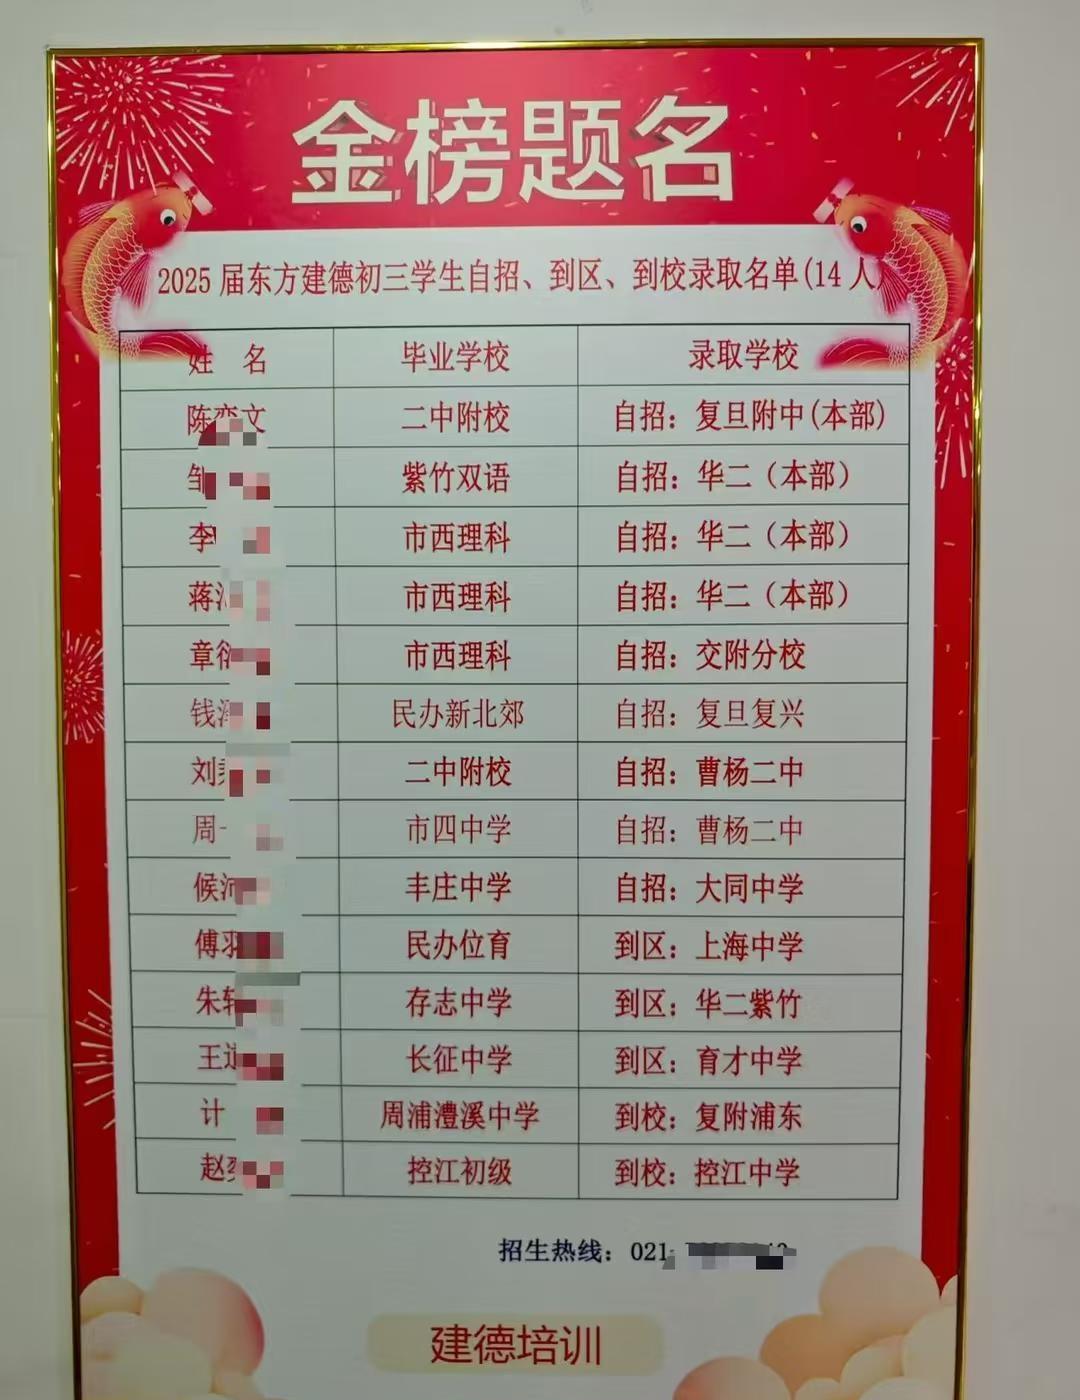 金榜题名
2025届东方建德初三学生自招、到区、到校录取名单(14人)
姓 名 毕业学校 录取学校
陈奕文 二中附校 自招：复旦附中(本部)
邹 紫竹双语 自招：华二（本部）
李 市西理科 自招：华二（本部）
蒋 市西理科 自招：华二（本部）
章 市西理科 自招：交附分校
钱 民办新北郊 自招：复旦复兴
刘 二中附校 自招：曹杨二中
周 市四中学 自招：曹杨二中
候 丰庄中学 自招：大同中学
傅 民办位育 到区：上海中学
朱 存志中学 到区：华二紫竹
王 长征中学 到区：育才中学
计 周浦澧溪中学 到校：复附浦东
赵 控江初级 到校：控江中学
招生热线：021
建德培训